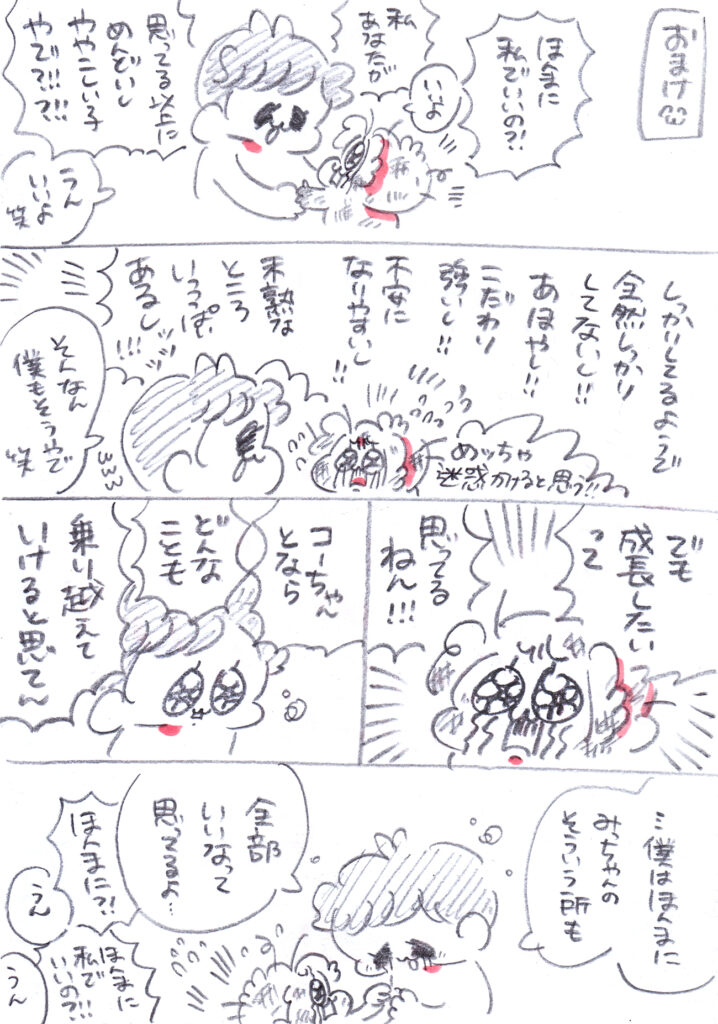 おまけ
ほんまに
私でいいの?!
いいよ
私
あなたが
思ってる以上に
めんどいし
ややこしい子
やで?!?!!
うん
いいよ
笑
しっかりしてるようで
全然しっかり
してないし!!
あほやし!!
こだわり
強いし!!
不安に
なりやすいし
!!
未熟な
ところ
いっぱい
あるし
!!!
めッちゃ
迷惑かけると思う!!
そんなん
僕もそうやで
笑
でも
成長したい
って
思ってる
ねん!!!
コーちゃん
となら
どんな
ことも
乗り越えて
いけると思て〜
…僕はほんまに
みっちゃんの
そういう所も
全部
いいなって
思ってるよ…
ほんまに?!
うん
ほんまに
私で
いいの?!!
うん